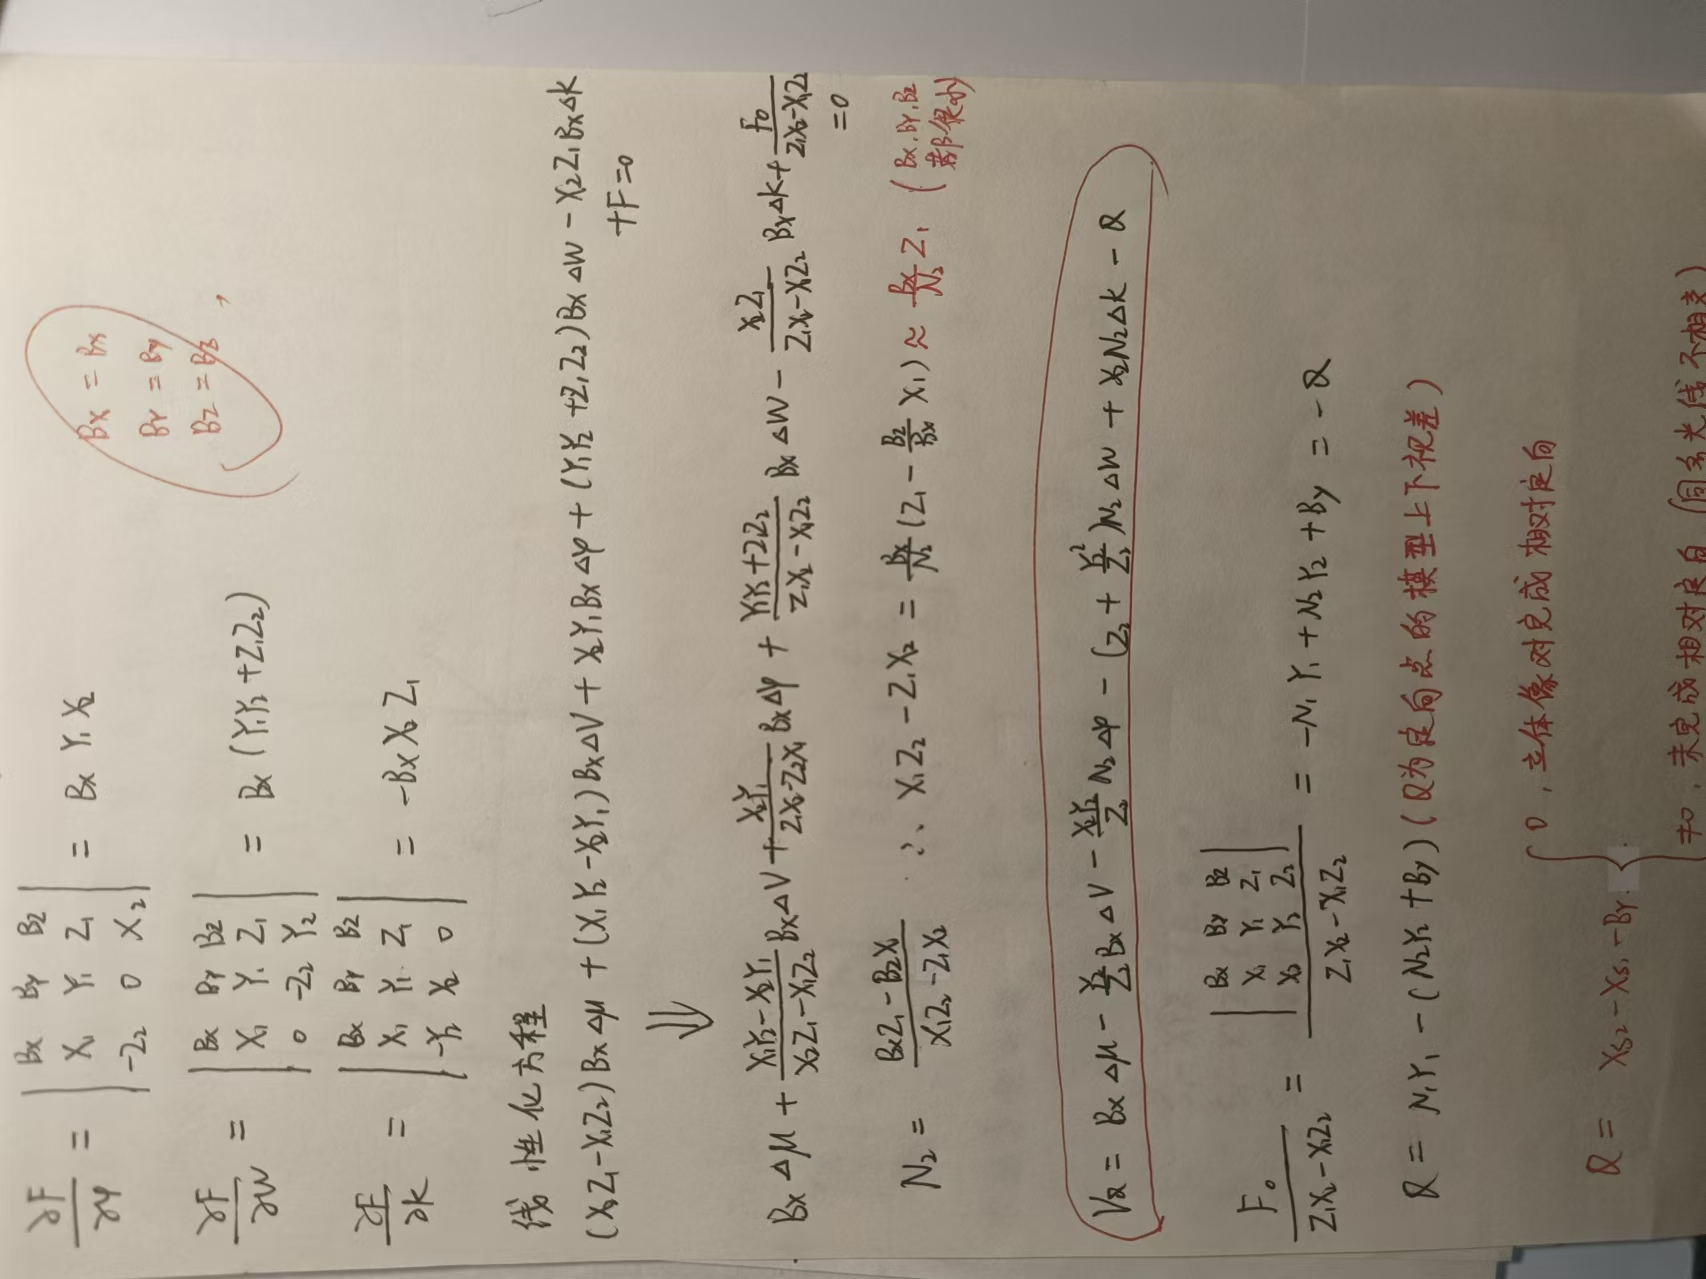 ∂F/∂φ = | Bx By Bz ; X₁ Y₁ Z₁ ; -Z₂ 0 X₂ | = Bx Y₁X₂
Bx = Bx
By = By
Bz = Bz ,
∂F/∂w = | Bx By Bz ; X₁ Y₁ Z₁ ; 0 -Z₂ Y₂ | = Bx (Y₁Y₂ + Z₁Z₂)
∂F/∂k = | Bx By Bz ; X₁ Y₁ Z₁ ; -Y₂ X₂ 0 | = -Bx X₂ Z₁
线性化方程
(X₂Z₁-X₁Z₂)Bx Δμ + (X₁Y₂-X₂Y₁)Bx ΔV + X₂Y₁BxΔφ + (Y₁Y₂+Z₁Z₂)Bx ΔW - X₂Z₁BxΔk
+F=0
⇓
Bx Δμ + (X₁Y₂-X₂Y₁)/(X₂Z₁-X₁Z₂) BxΔV + X₂Y₁/(Z₁X₂-Z₂X₁) BxΔφ + (Y₁Y₂+Z₁Z₂)/(Z₁X₂-X₁Z₂) Bx ΔW - X₂Z₁/(Z₁X₂-X₁Z₂) BxΔk + F₀/(Z₁X₂-X₁Z₂)
=0
N₂ = (BxZ₁-BzX₁)/(X₁Z₂-Z₁X₂) ∴ X₁Z₂-Z₁X₂ = Bx/N₂ (Z₁ - Bz/Bx X₁) ≈ Bx/N₂ Z₁ (Bx,By,Bz 都很小)
VQ = Bx Δμ - Y₂/Z₂ Bx ΔV - X₂Y₂/Z₂ N₂Δφ - (Z₂ + Y₂²/Z₂)N₂ΔW + X₂N₂Δk - Q
F₀/(Z₁X₂-X₁Z₂) = | Bx By Bz ; X₁ Y₁ Z₁ ; X₂ Y₂ Z₂ | / (Z₁X₂-X₁Z₂) = -N₁Y₁ + N₂Y₂ + By = -Q
Q = N₁Y₁ - (N₂Y₂ + By) (Q为定向点的模型上下视差)
Q = Xs₂ - Xs₁ - By { 0,立体像对完成相对定向
≠0,未完成相对定向 (同名光线不相交)